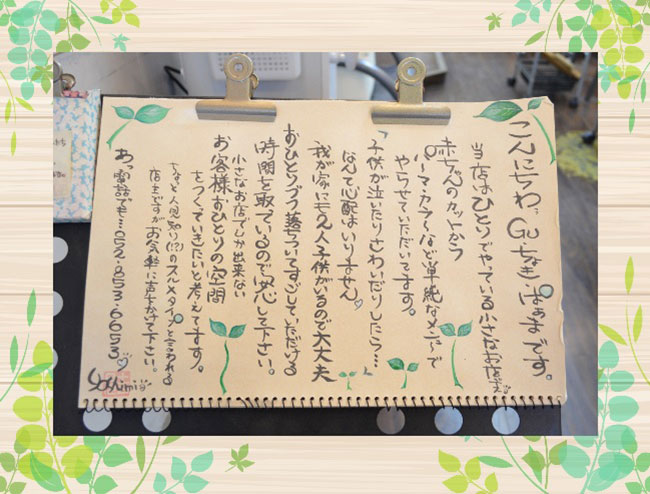 こんにちわ、Guちょきぱぁまです。
当店はひとりでやっている小さなお店です。
赤ちゃんのカットから
パーマ・カラーなど単純なメニューで
やらせていただいてます。
「子供が泣いたりさわいだりしたら…」
なんて心配はいりません
我が家にも2人子供がいるので大丈夫
おひとりづつ落ちついてすごしていただける
時間を取っているので安心して下さい。
小さなお店でしか出来ない
お客様おひとりの空間
をつくっていきたいと考えてます。
ちょっと人見知り(!?)のスルメタイプと言われる
店主ですがお気軽に声かけて下さい。
あっ電話でも…052・853・6653
Yoshimi